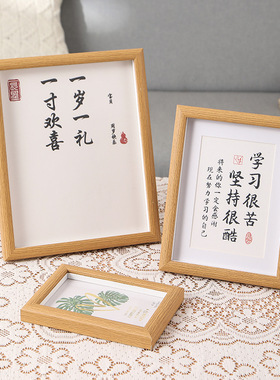 一岁一礼
一寸欢喜
宝贝
周岁快乐
学习很苦
坚持很酷
将来的你一定会感谢
现在努力学习的自己